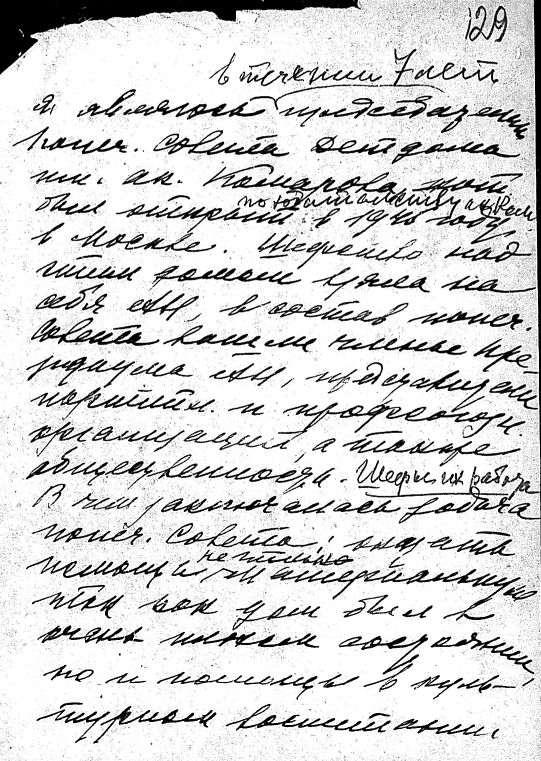 129
в течении 7 лет
я являюсь председателем
попеч. совета детдома
им. ак. Комарова, кот.
по ходатайству ак. Ком.
был открыт в 1946 году
в Москве. Шефство над
этим домом взяла на
себя АН, в состав попеч.
совета вошли члены пре-
зидиума АН, представители
партийн. и профсоюзн.
организаций, а также
общественность. Шефы их работа
В чем заключалась работа
попеч. совета: оказать
не только
помощь материальную
так как дом был в
очень плохом состоянии,
но и помощь в куль-
турном воспитании